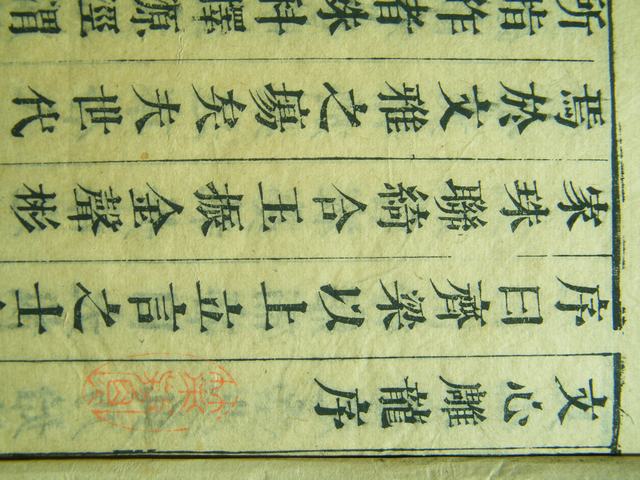 文心雕龍序
序曰齊梁以上立言之士
家珠聯綺合玉振金聲彬
焉於文雅之場矣夫世代
所指作者殊科源涇渭